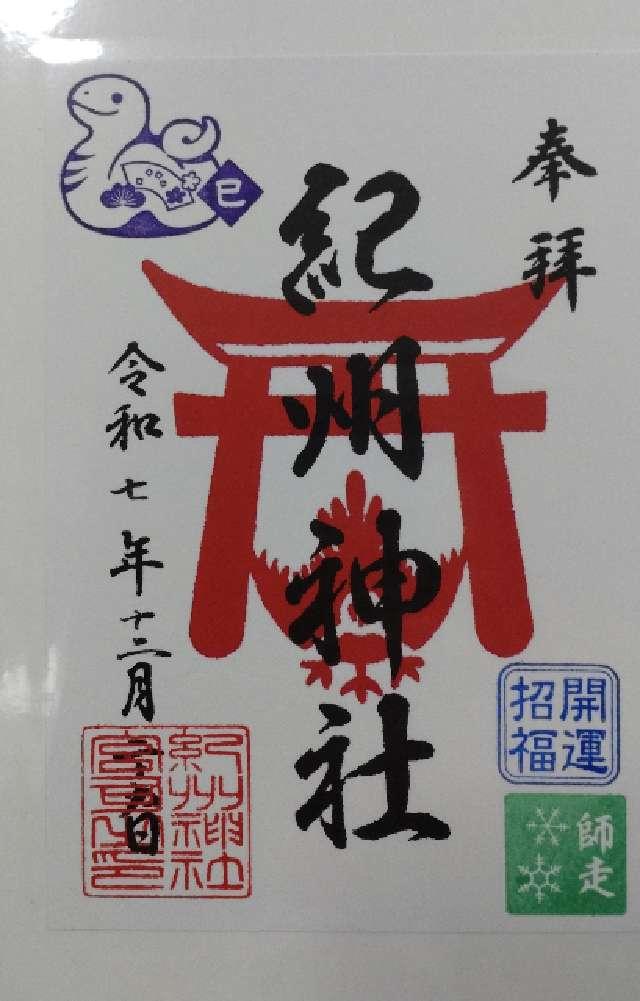 奉拝
紀州神社
令和七年十二月二十三日
巳
開運
招福
師走
紀州神社